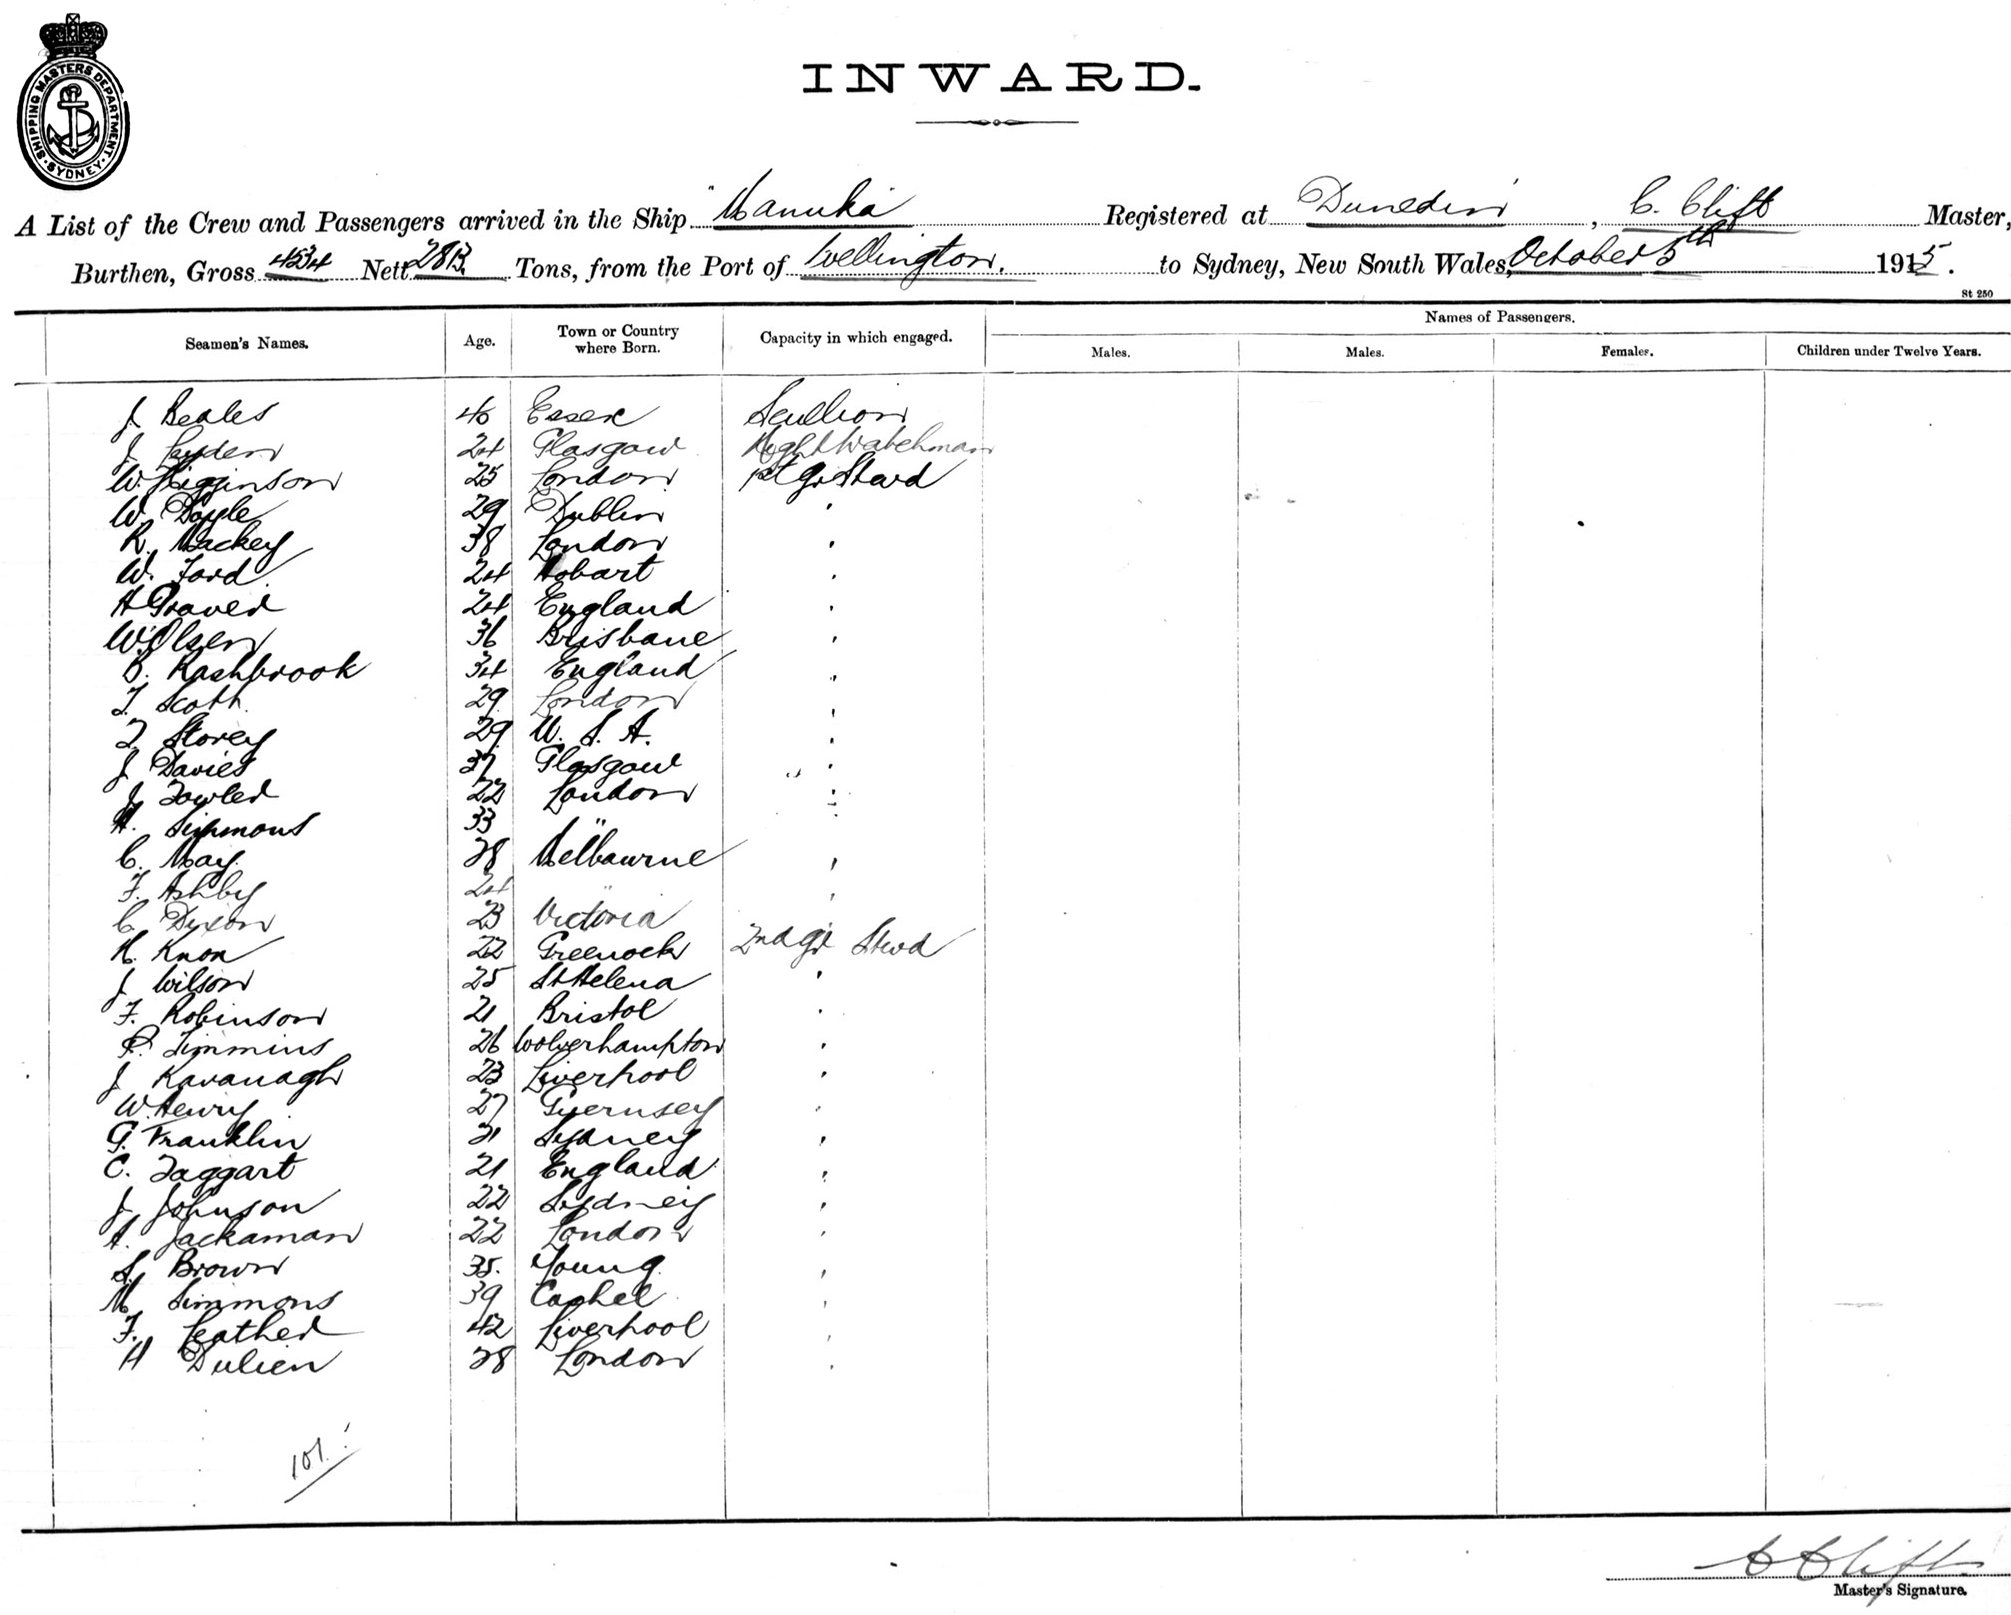 SHIPPING MASTERS DEPARTMENT · SYDNEY ·
INWARD.
A List of the Crew and Passengers arrived in the Ship "Manuka Registered at Dunedin, C. Clift Master,
Burthen, Gross 4534 Nett 2813 Tons, from the Port of Wellington. to Sydney, New South Wales, October 5th 1915.
St 250
Seamen's Names. Age. Town or Country where Born. Capacity in which engaged. Names of Passengers.
Males. Males. Females. Children under Twelve Years.
J. Beales 40 Essex Scullion
J. Leyden 24 Glasgow Night Watchman
W. Higginson 25 London 1st Gr Stwd
W. Doyle 29 Dublin '
R. Mackey 38 London '
W. Ford 24 Hobart '
H Graver 24 England '
W. Olsen 36 Brisbane '
B. Rashbrook 34 England "
T. Scott 29 London '
T. Storey 29 U. S. A. '
J. Davies 37 Glasgow '
J. Fowler 22 London '
H. Simmons 33 " '
C. May 28 Melbourne '
F. Ashby 24 " '
C. Dixon 23 Victoria
H. Knox 22 Greenock 2nd Gr Stwd
J. Wilson 25 St Helena '
F. Robinson 21 Bristol '
P. Timmins 26 Wolverhampton '
J. Kavanagh 23 Liverpool '
W. Henry 27 Guernsey '
G. Franklin 21 Sydney '
C. Taggart 21 England '
J. Johnson 22 Sydney '
A. Jackaman 22 London '
S. Brown 35. Young '
M. Simmons 39 Cashel '
F. Leather 42 Liverpool '
H Dulien 28 London '
101
C Clift
Master's Signature.